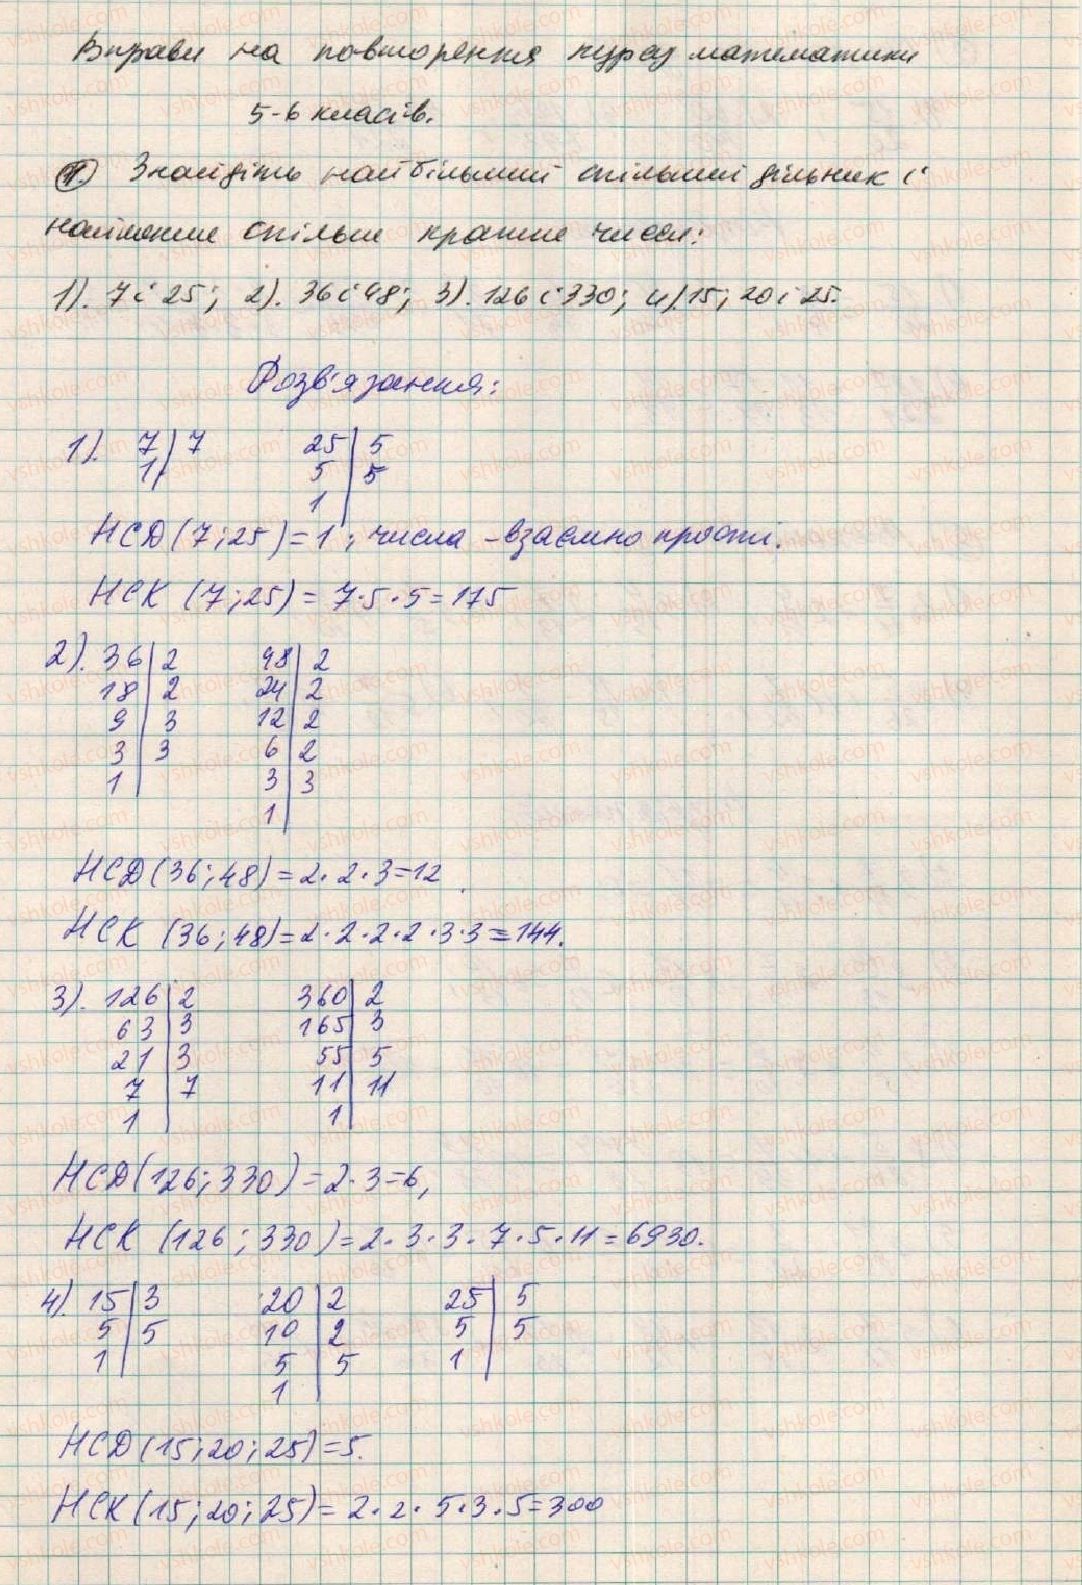 Вправи на повторення курсу математики
5-6 класів.
1. Знайдіть найбільший спільний дільник і
найменше спільне кратне чисел:
1). 7 і 25; 2). 36 і 48; 3). 126 і 330; 4). 15; 20 і 25.
Розв'язання:
1). 7 | 7 25 | 5
1 | 5 | 5
1 |
НСД (7; 25) = 1, числа - взаємно прості.
НСК (7; 25) = 7·5·5 = 175
2). 36 | 2 48 | 2
18 | 2 24 | 2
9 | 3 12 | 2
3 | 3 6 | 2
1 | 3 | 3
1 |
НСД (36; 48) = 2·2·3 = 12.
НСК (36; 48) = 2·2·2·2·3·3 = 144.
3). 126 | 2 360 | 2
63 | 3 165 | 3
21 | 3 55 | 5
7 | 7 11 | 11
1 | 1 |
НСД (126; 330) = 2·3 = 6,
НСК (126; 330) = 2·3·3·7·5·11 = 6930.
4). 15 | 3 20 | 2 25 | 5
5 | 5 10 | 2 5 | 5
1 | 5 | 5 1 |
1 |
НСД (15; 20; 25) = 5.
НСК (15; 20; 25) = 2·2·5·3·5 = 300
vshkole.com